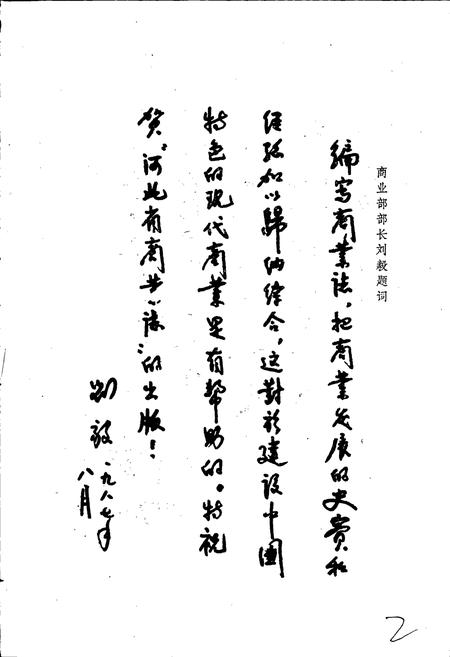 商业部部长刘毅题词
编写商業誌，把商業发展的史实和
经验加以歸纳综合，这對於建设中國
特色的现代商業是有帮助的。特祝
贺“河北省商业誌”的出版！
刘毅 一九八七年
八月
2